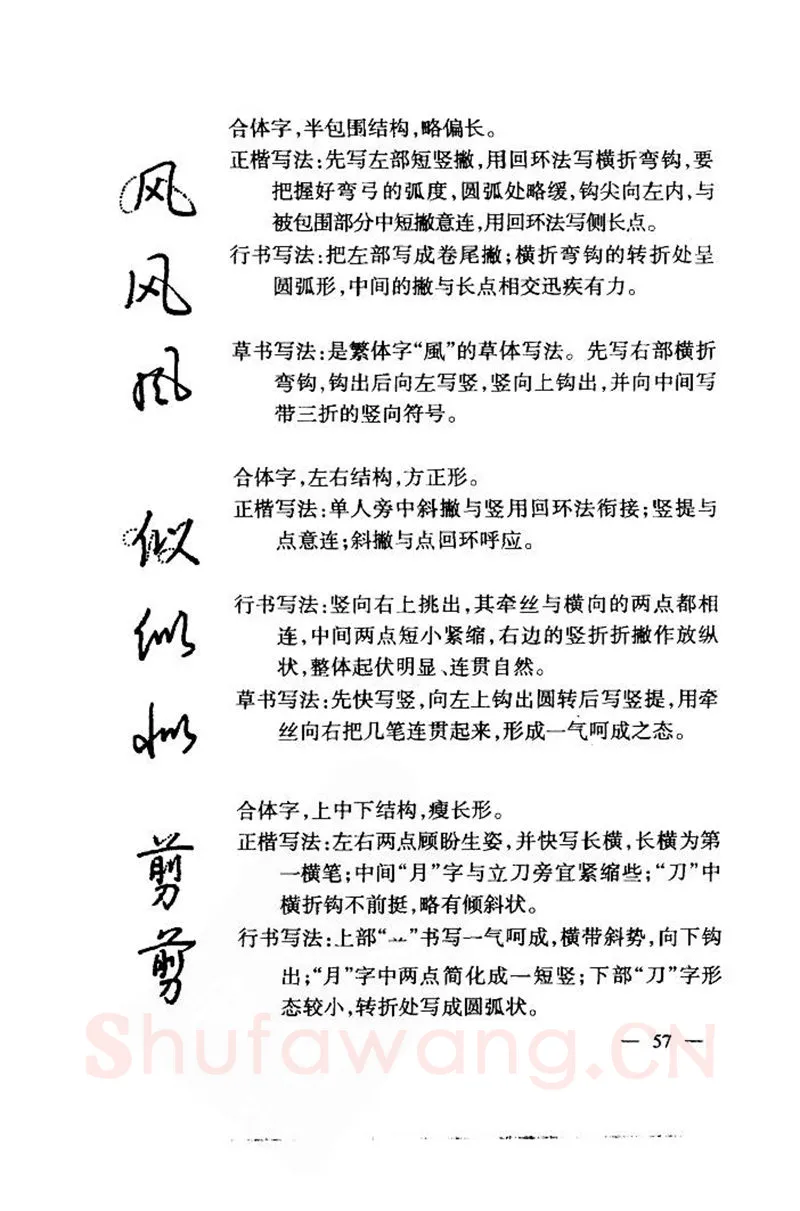 合体字,半包围结构,略偏长。
风
正楷写法:先写左部短竖撇,用回环法写横折弯钩,要
把握好弯弓的弧度,圆弧处略缓,钩尖向左内,与
被包围部分中短撇意连,用回环法写侧长点。
风
行书写法:把左部写成卷尾撇;横折弯钩的转折处呈
圆弧形,中间的撇与长点相交迅疾有力。
風
草书写法:是繁体字“風”的草体写法。先写右部横折
弯钩,钩出后向左写竖,竖向上钩出,并向中间写
带三折的竖向符号。
合体字,左右结构,方正形。
似
正楷写法:单人旁中斜撇与竖用回环法衔接;竖提与
点意连;斜撇与点回环呼应。
似
行书写法:竖向右上挑出,其牵丝与横向的两点都相
连,中间两点短小紧缩,右边的竖折折撇作放纵
状,整体起伏明显、连贯自然。
似
草书写法:先快写竖,向左上钩出圆转后写竖提,用牵
丝向右把几笔连贯起来,形成一气呵成之态。
合体字,上中下结构,瘦长形。
剪
正楷写法:左右两点顾盼生姿,并快写长横,长横为第
一横笔;中间“月”字与立刀旁宜紧缩些;“刀”中
横折钩不前挺,略有倾斜状。
剪
行书写法:上部“䒑”书写一气呵成,横带斜势,向下钩
出;“月”字中两点简化成一短竖;下部“刀”字形
态较小,转折处写成圆弧状。
— 57 —
Shufawang.CN